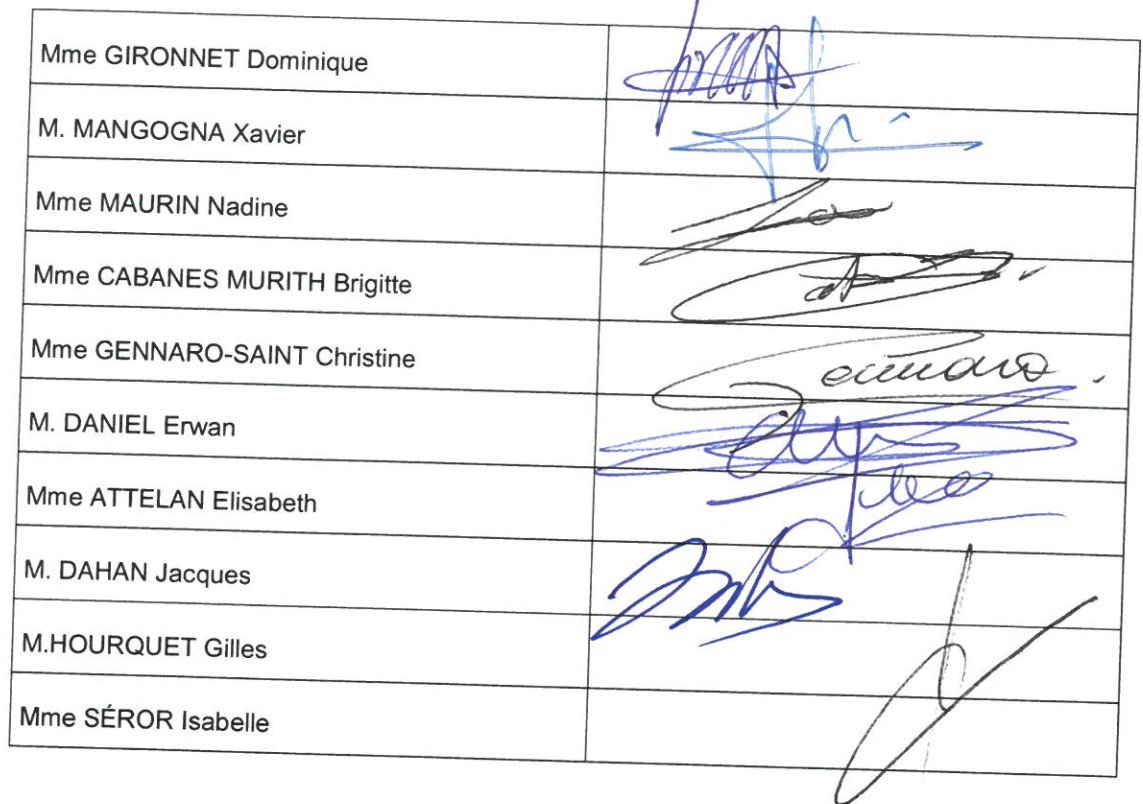 Mme GIRONNET Dominique
M. MANGOGNA Xavier
Mme MAURIN Nadine
Mme CABANES MURITH Brigitte
Mme GENNARO-SAINT Christine
Gennaro
M. DANIEL Erwan
Mme ATTELAN Elisabeth
M. DAHAN Jacques
M.HOURQUET Gilles
Mme SÉROR Isabelle